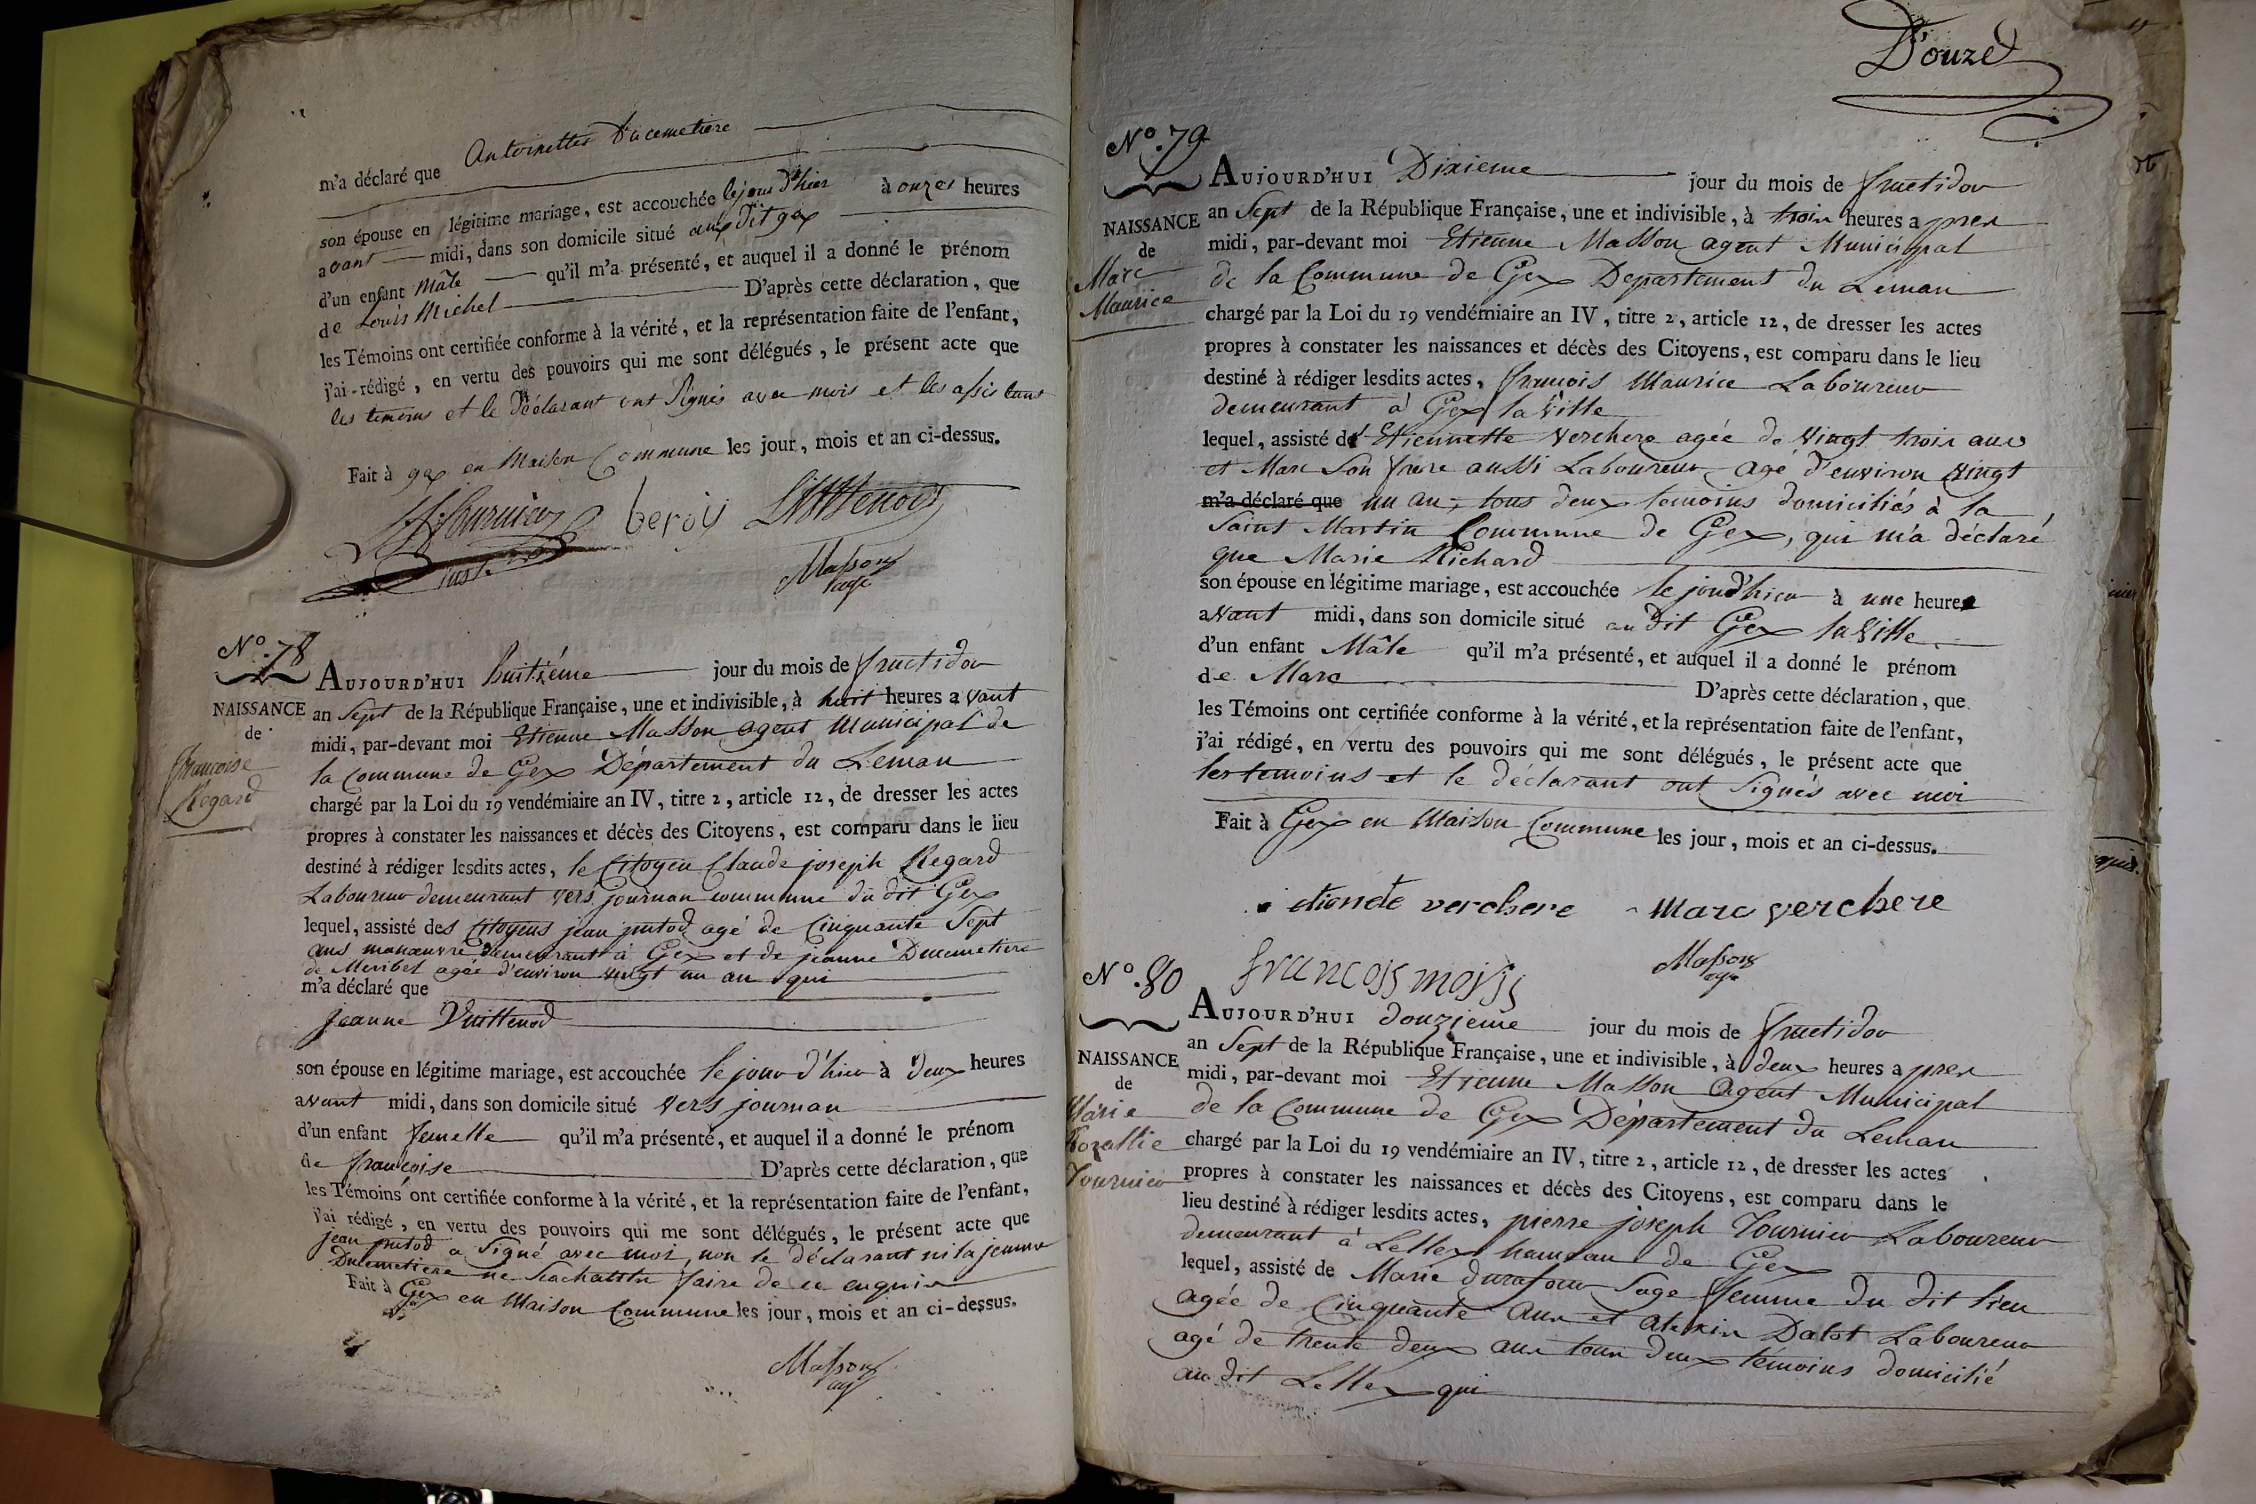 m'a déclaré que Antoinettes Ducemetiere
son épouse en légitime mariage, est accouchée le jour d'hier à onzes heures
avant midi, dans son domicile situé au dit gex
d'un enfant Mâle qu'il m'a présenté, et auquel il a donné le prénom
de Louis Michel D'après cette déclaration, que
les Témoins ont certifiée conforme à la vérité, et la représentation faite de l'enfant,
j'ai-rédigé, en vertu des pouvoirs qui me sont délégués, le présent acte que
les temoins et le Déclarant ont Signés avec mois et les assistans
Fait à gex en Maison Commune les jour, mois et an ci-dessus.
Masson
agt
N.º 78
AUJOURD'HUI huitiéme jour du mois de fructidor
NAISSANCE
de
francoise
Regard
an Sept de la République Française, une et indivisible, à huit heures avant
midi, par-devant moi Etienne Masson agent Municipal de
la Commune de Gex Département du Leman
chargé par la Loi du 19 vendémiaire an IV, titre 2, article 12, de dresser les actes
propres à constater les naissances et décès des Citoyens, est comparu dans le lieu
destiné à rédiger lesdits actes, le Citoyen Claude joseph Regard
Laboureur demeurant vers journan commune du dit Gex
lequel, assisté des Citoyens jean putod agé de Cinquante Sept
ans manœuvre demeurant à Gex et de jeanne Ducimetiere
de Meribel agée d'environ vingt un an qui
m'a déclaré que
Jeanne Vuittenod
son épouse en légitime mariage, est accouchée le jour d'hier à deux heures
avant midi, dans son domicile situé vers journan
d'un enfant femelle qu'il m'a présenté, et auquel il a donné le prénom
de francoise D'après cette déclaration, que
les Témoins ont certifiée conforme à la vérité, et la représentation faite de l'enfant,
j'ai rédigé, en vertu des pouvoirs qui me sont délégués, le présent acte que
jean putod a Signé avec moi, non le déclarant ni la jeanne
Ducimetiere ne Sachant le faire de ce enquis
Fait à Gex en Maison Commune les jour, mois et an ci-dessus.
Masson
agt
Douze
N.º 79
AUJOURD'HUI Dixieme jour du mois de fructidor
NAISSANCE
de
Marc
Maurice
an Sept de la République Française, une et indivisible, à trois heures apres
midi, par-devant moi Etienne Masson agent Municipal
de la Commune de Gex Departement du Leman
chargé par la Loi du 19 vendémiaire an IV, titre 2, article 12, de dresser les actes
propres à constater les naissances et décès des Citoyens, est comparu dans le lieu
destiné à rédiger lesdits actes, francois Maurice Laboureur
demeurant à Gex la Ville
lequel, assisté d'Etiennette Verchere agée de Vingt trois ans
et Marc Son frere aussi Laboureur agé d'environ Vingt
m'a déclaré que un an, tous deux temoins domiciliés à la
Saint Martin Commune de Gex, qui m'a déclaré
que Marie Richard
son épouse en légitime mariage, est accouchée le jourd'hier à une heure
avant midi, dans son domicile situé au dit Gex la Ville
d'un enfant Mâle qu'il m'a présenté, et auquel il a donné le prénom
de Marc D'après cette déclaration, que
les Témoins ont certifiée conforme à la vérité, et la représentation faite de l'enfant,
j'ai rédigé, en vertu des pouvoirs qui me sont délégués, le présent acte que
les temoins et le déclarant ont Signés avec moi
Fait à Gex en Maison Commune les jour, mois et an ci-dessus.
etienete verchere Marc verchere
Masson
agt
N.º 80
AUJOURD'HUI douzieme jour du mois de fructidor
NAISSANCE
de
Marie
Rozallie
Tournier
an Sept de la République Française, une et indivisible, à deux heures apres
midi, par-devant moi Etienne Masson Agent Municipal
de la Commune de Gex Département du Leman
chargé par la Loi du 19 vendémiaire an IV, titre 2, article 12, de dresser les actes
propres à constater les naissances et décès des Citoyens, est comparu dans le
lieu destiné à rédiger lesdits actes, pierre joseph Tournier Laboureur
demeurant à Lellex hameau de Gex
lequel, assisté de Marie durafour Sage femme du dit lieu
agée de Cinquante ans et alexis Dalot Laboureur
agé de trente deux ans tous deux témoins domicilié
au dit Lellex qui